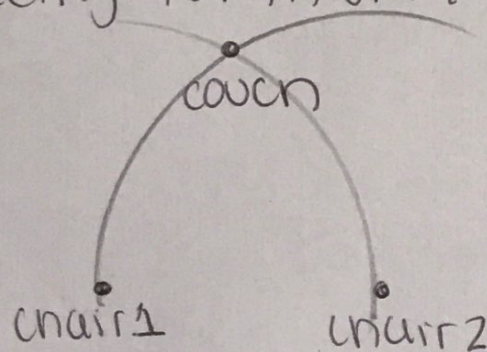 couch
chair1 chair2